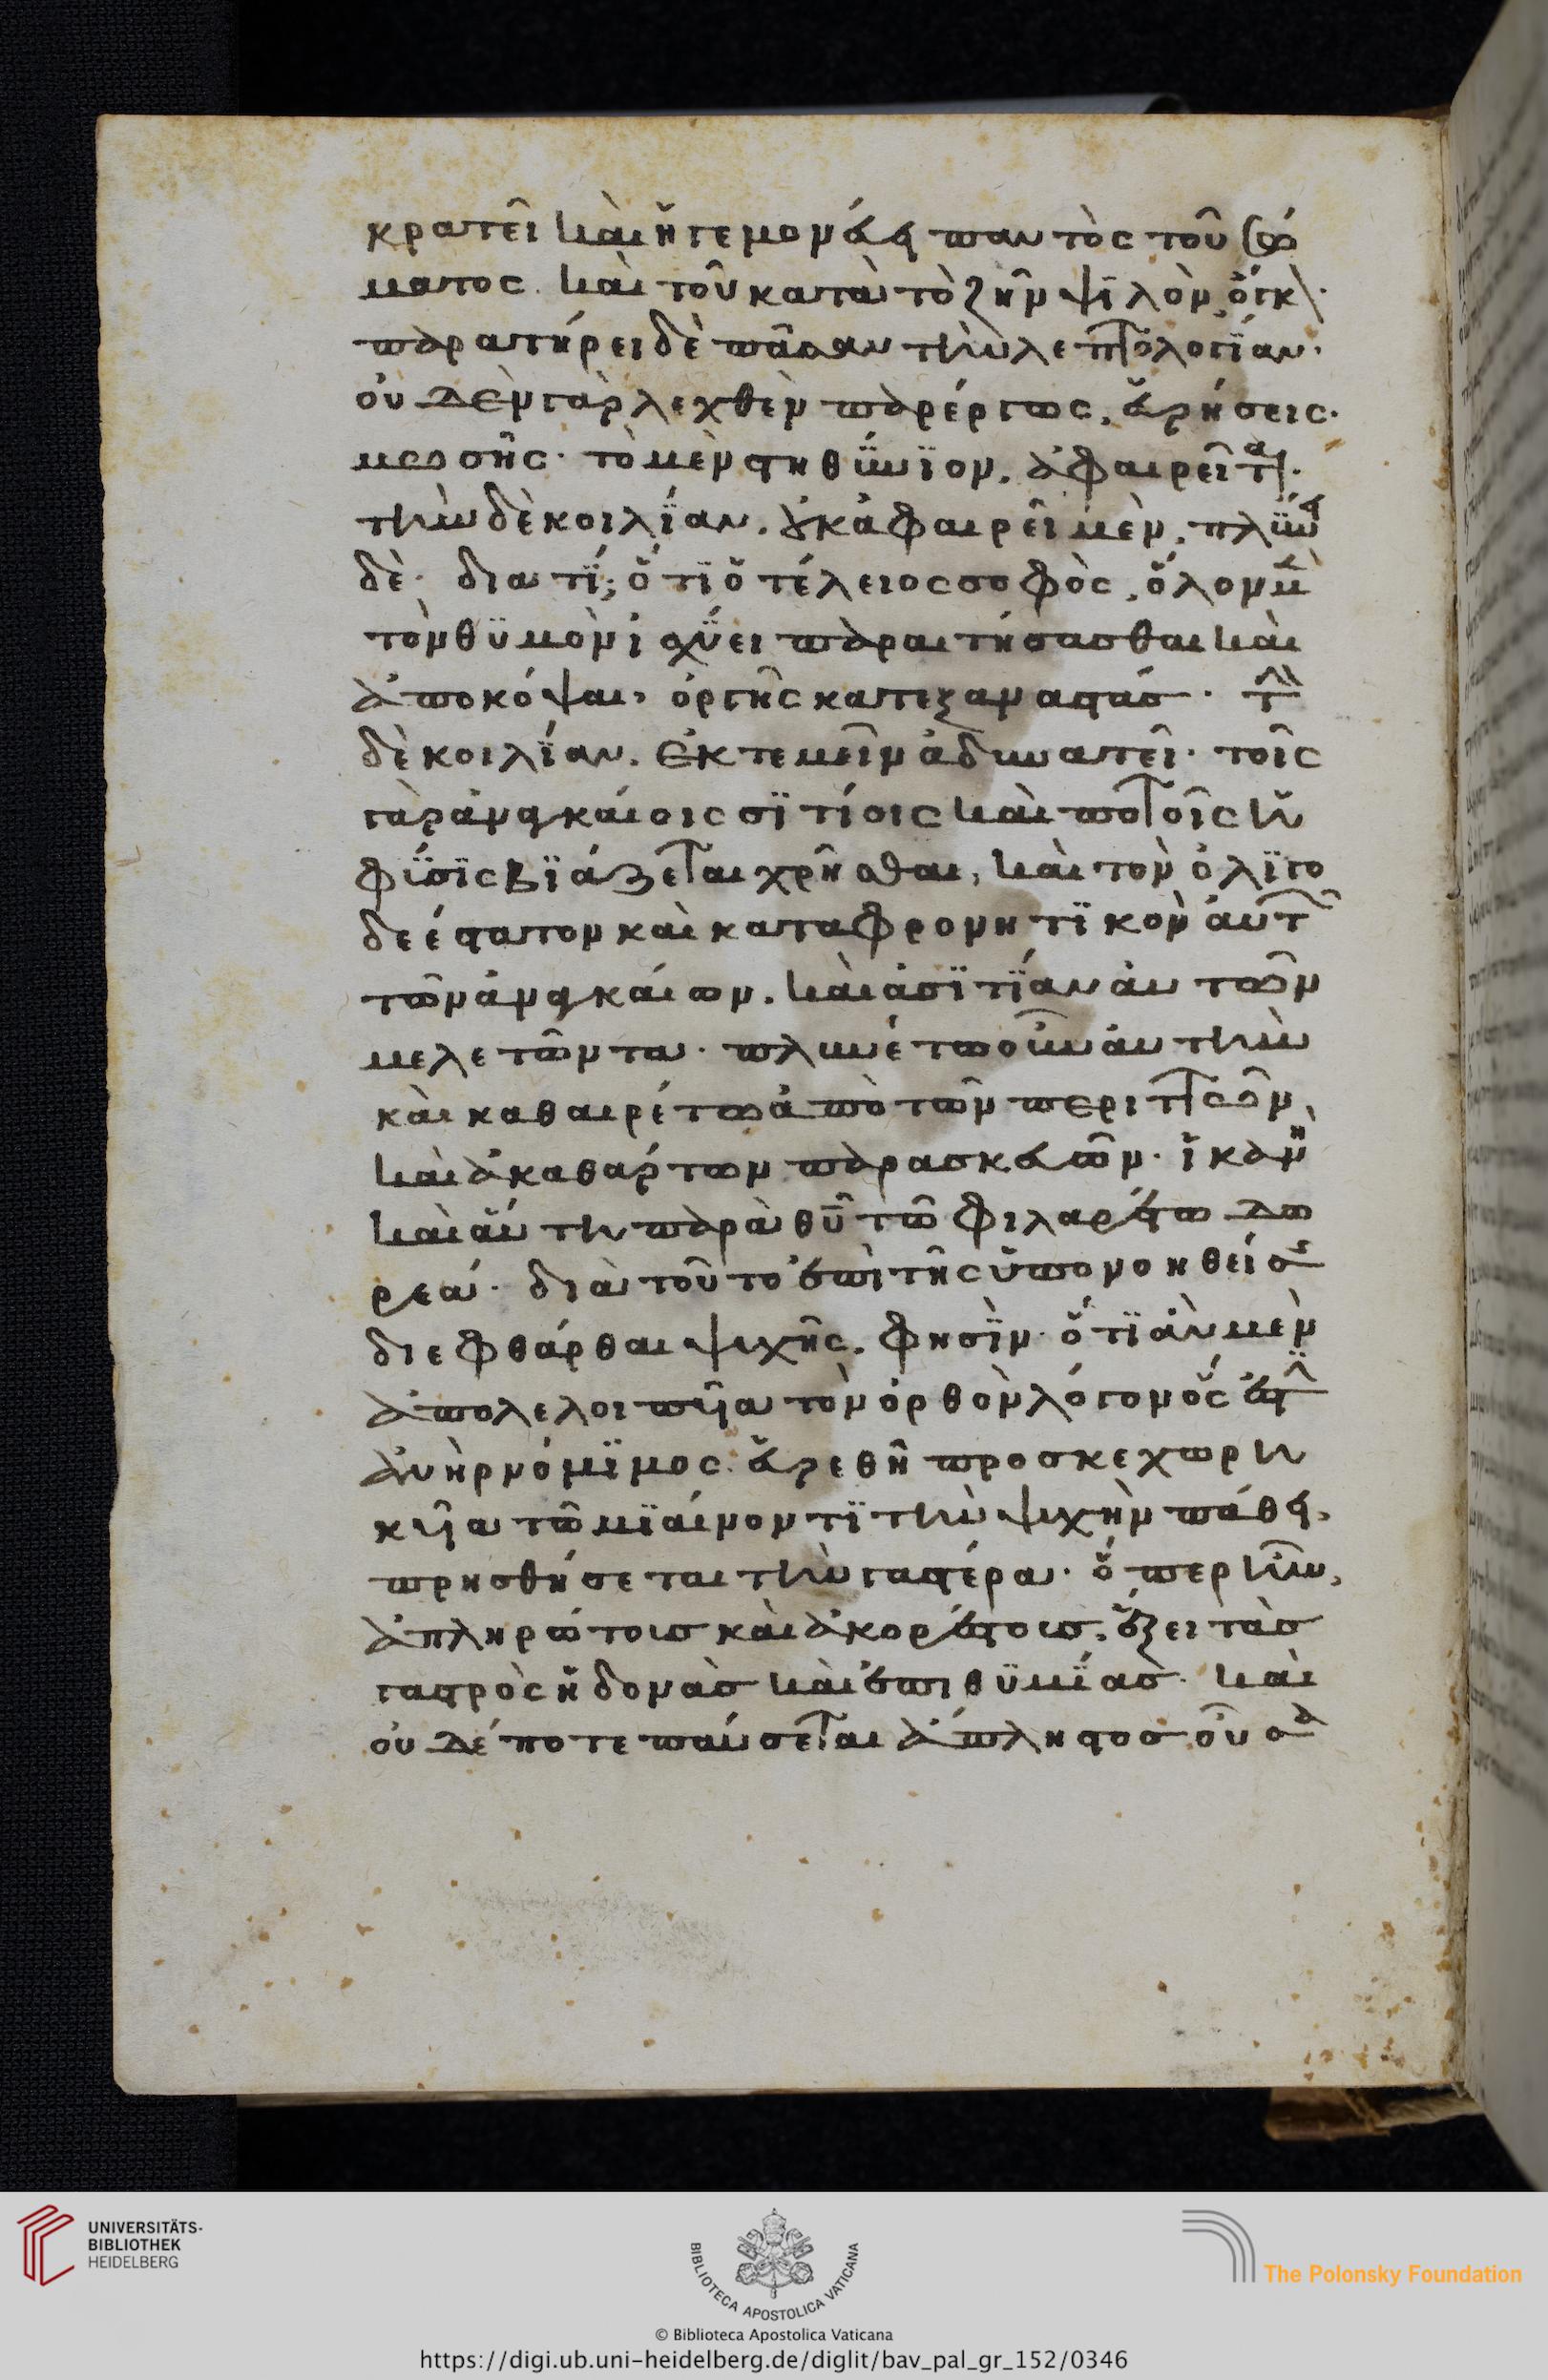 κρατεῖ καὶ ἡγεμονεύει παντὸς τοῦ σώ
ματος. καὶ τοῦ κατὰ τὸ ζῆν ψιλὸν ὄγκ
παρατήρει δὲ πᾶσαν τὴν λεπτολογίαν.
οὐδὲν γὰρ λεχθὲν παρέργως, εὑρήσεις.
μωσῆς. τὸ μὲν στηθύνϊον. ἀφαιρεῖτ
τὴν δὲ κοιλίαν. οὐκ ἀφαιρεῖ μὲν, πλύν
δὲ. διατί; ὅτι ὁ τέλειος σοφὸς, ὅλον μὲν
τὸν θϋμὸν ἰσχύει παραιτήσασθαι καὶ
ἀποκόψαι, ὀργῆς κατεξαναστάσ. τὴν
δὲ κοιλίαν. ἐκτεμεῖν ἀδυνατεῖ. τοῖς
γὰρ ἀναγκαίοις σϊτίοις καὶ ποτοῖς ἡ
φύσϊς βϊάζεται χρῆσθαι, καὶ τὸν ὀλϊγο
δεέστατον καὶ καταφρονητϊκὸν αὐτ
τῶν ἀναγκαίων. καὶ ἀσϊτίαν αὐτῶν
μελετῶντα. πλυνέτω οὖν αὐτὴν
καὶ καθαιρέτω ἀπὸ τῶν περιττῶν,
καὶ ἀκαθάρτων παρασκευῶν. ἱκανὴ
καὶ αὕτη παρὰ θῦ τῶ φιλαρέτω δω
ρεά. διὰ τοῦτο ἐπὶ τῆς ὑπονοηθείσ
διεφθάρθαι ψυχῆς. φησϊν. ὅτϊ ἂν μὲν
ἀπολελοιπυῖα τὸν ὀρθὸν λόγον ὅς ἐστϊν
ἀνὴρ νόμϊμος. εὑρεθῆ προσκεχωρη
κυῖα τῶ μϊαίνοντϊ τὴν ψυχὴν πάθει,
πρησθήσεται τὴν γαστέρα. ὅπερ ἦν,
ἀπληρώτοισ καὶ ἀκορέστοισ, ἕξει τὰσ
γαστρὸς ἡδονὰσ καὶ ἐπιθϋμίασ. καὶ
οὐδέποτε παύσεται ἄπληστοσ οὖσα
UNIVERSITÄTS-
BIBLIOTHEK
HEIDELBERG
BIBLIOTECA APOSTOLICA VATICANA
The Polonsky Foundation
© Biblioteca Apostolica Vaticana
https://digi.ub.uni-heidelberg.de/diglit/bav_pal_gr_152/0346